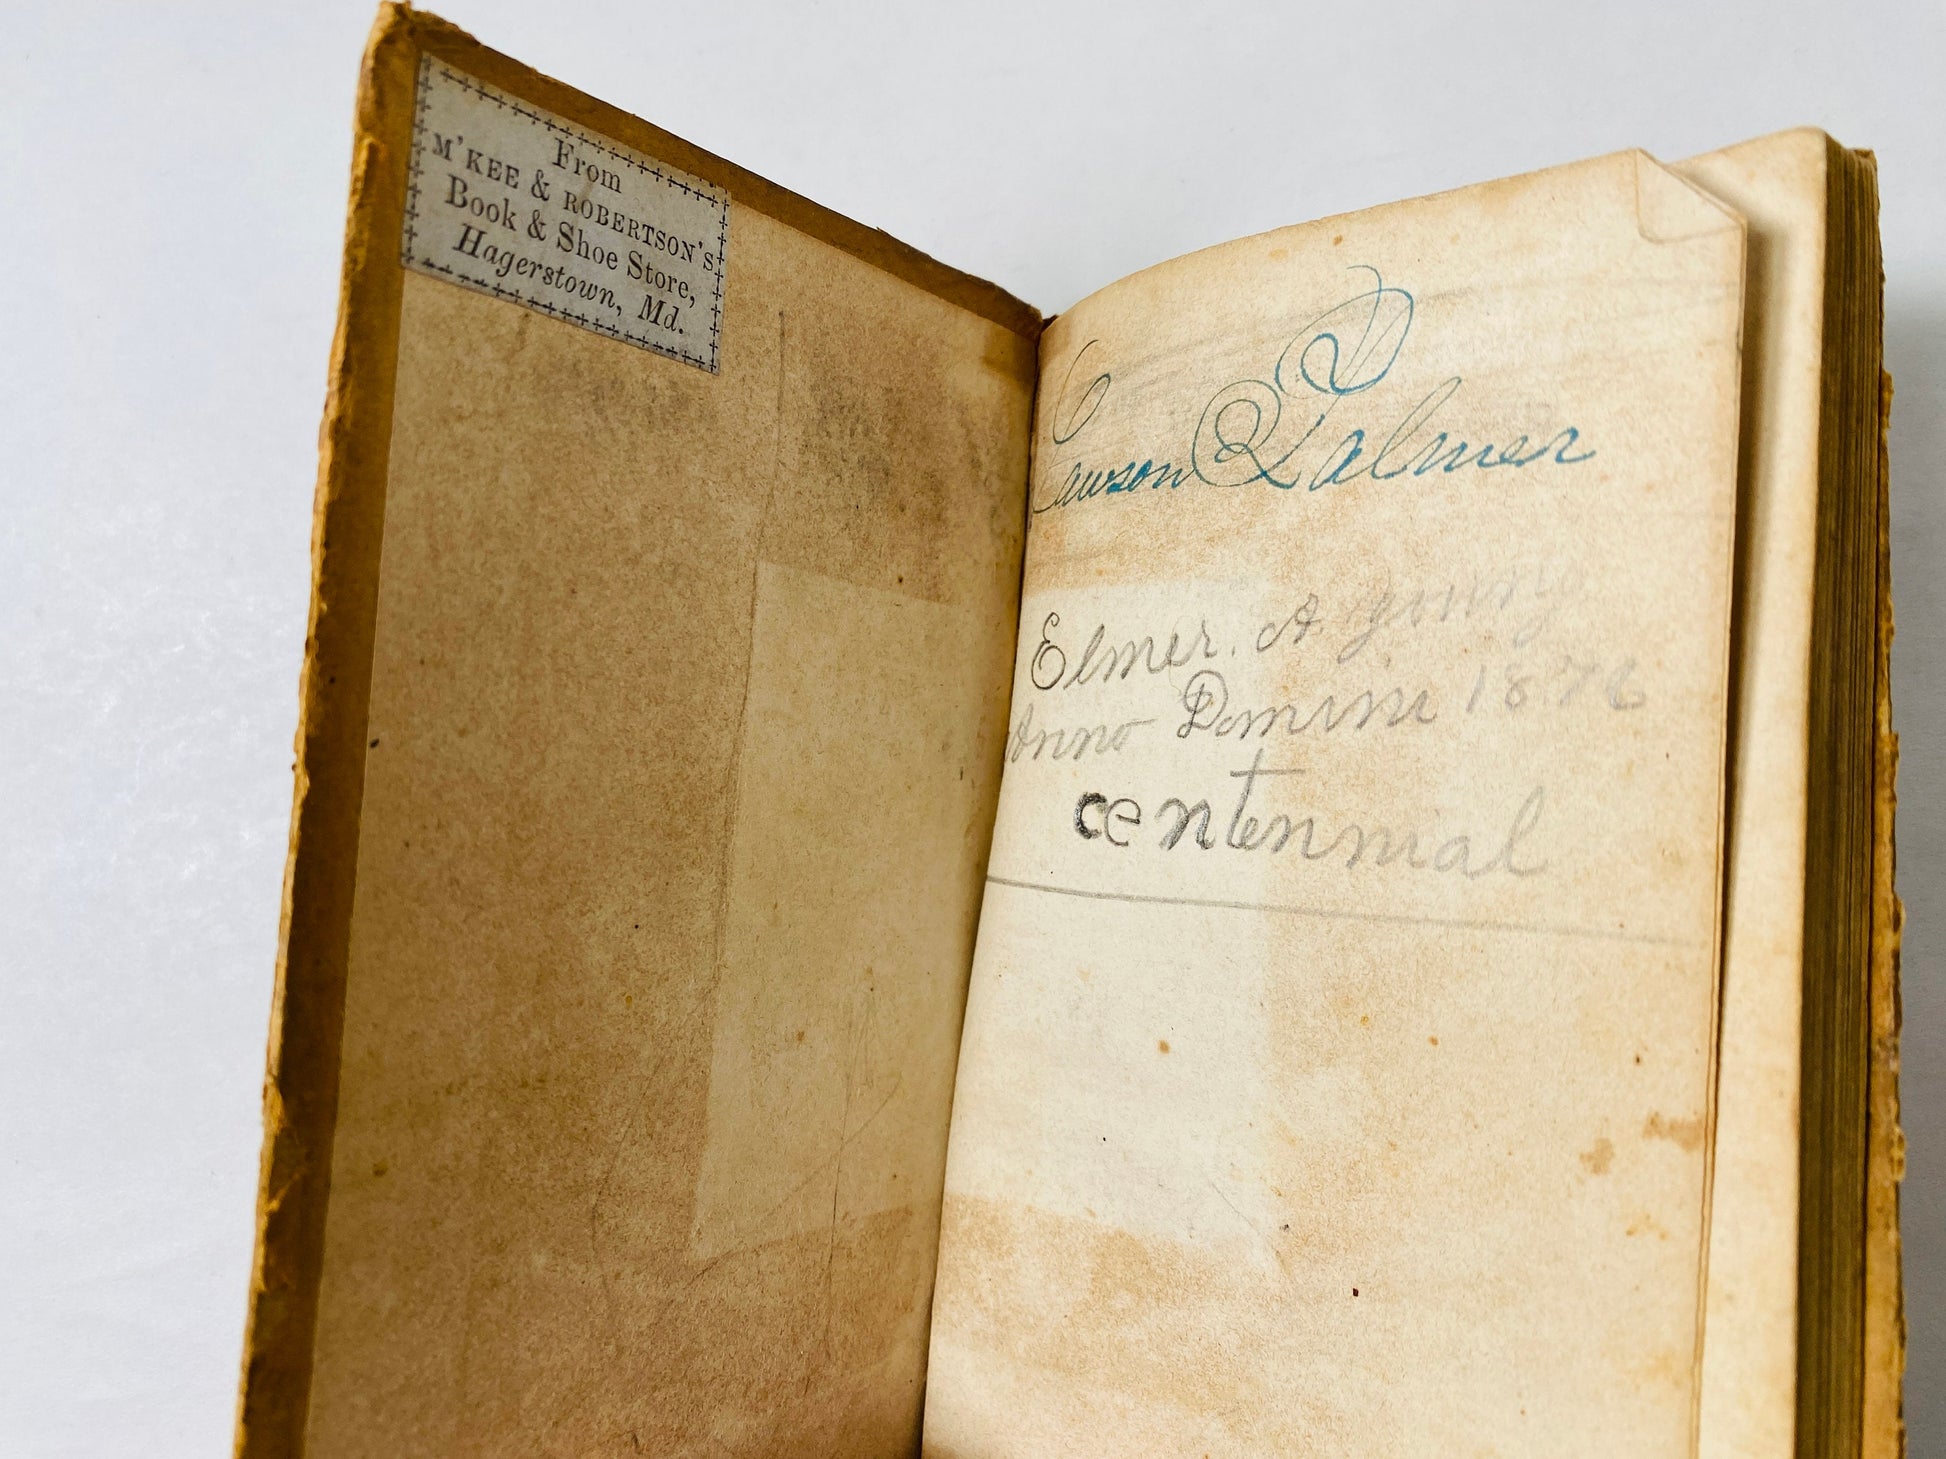 From
M'KEE & ROBERTSON'S
Book & Shoe Store,
Hagerstown, Md.
Lawson Palmer
Elmer. A young
Anno Domini 1876
centennial